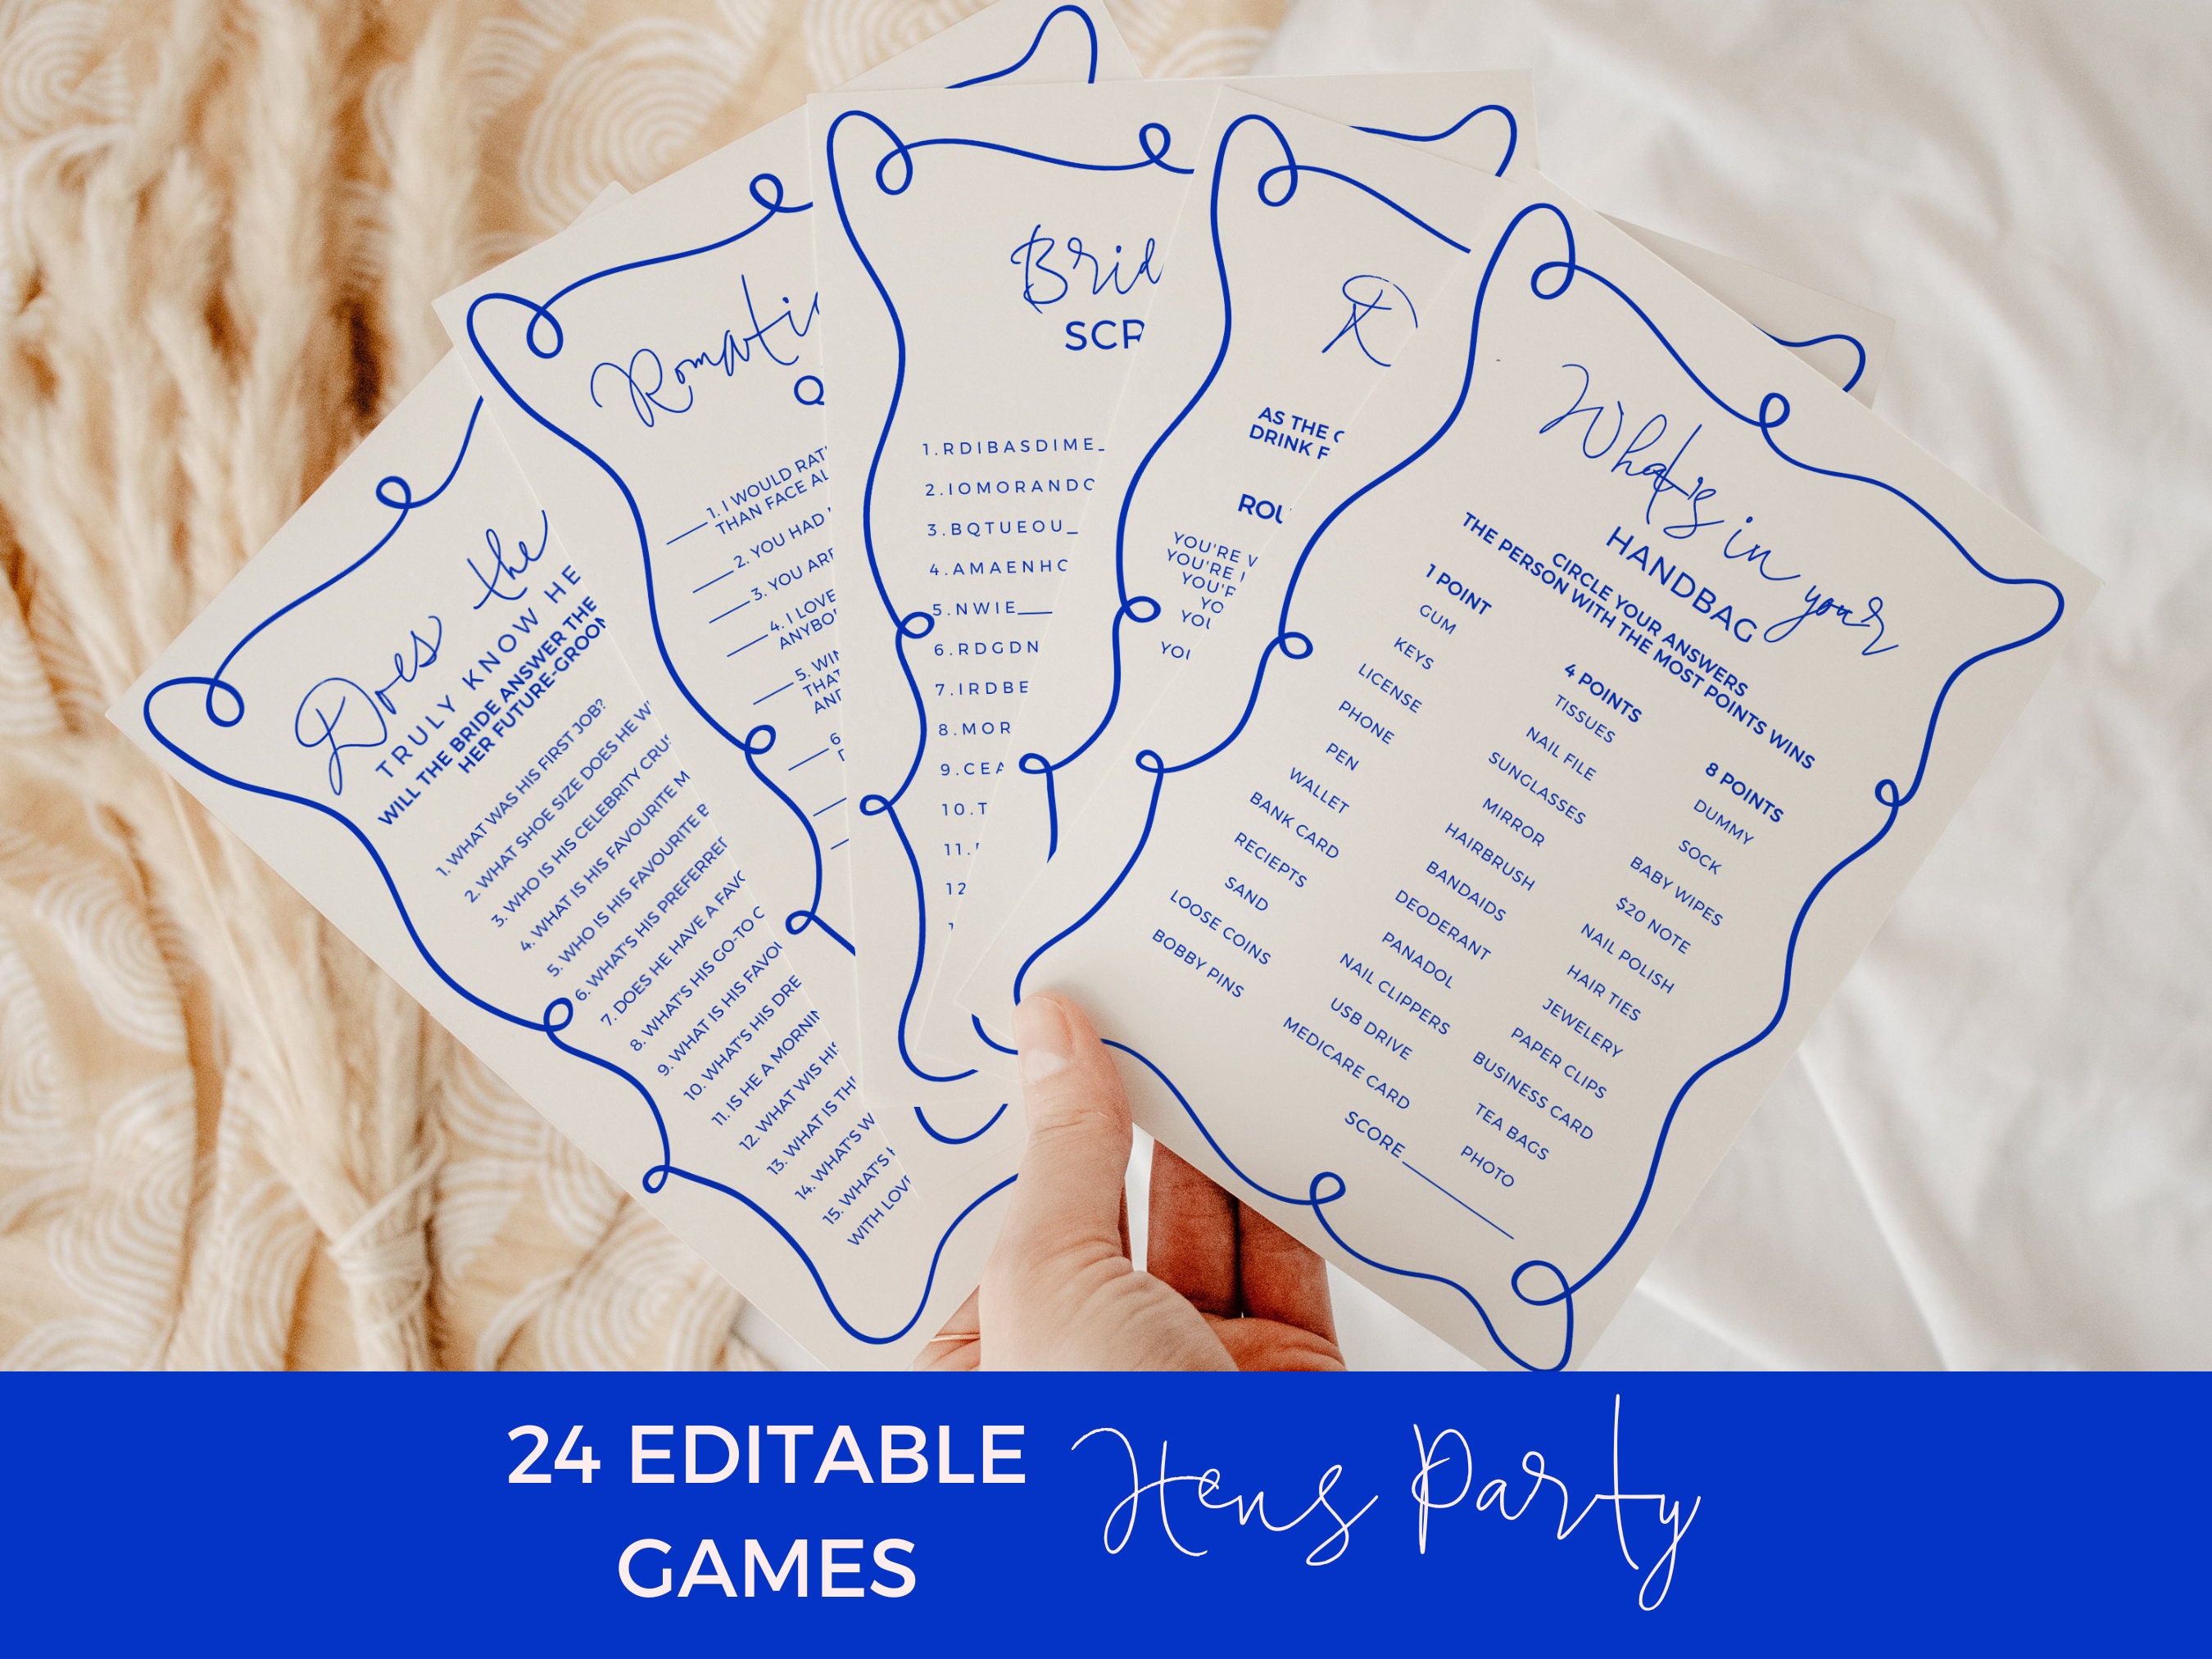 Does the
TRULY KNOW HE
WILL THE BRIDE ANSWER THE
HER FUTURE-GROOM
1. WHAT WAS HIS FIRST JOB?
2. WHAT SHOE SIZE DOES HE
3. WHO IS HIS CELEBRITY CRUS
4. WHAT IS HIS FAVOURITE M
5. WHO IS HIS FAVOURITE
6. WHAT'S HIS PREFERRE
7. DOES HE HAVE A FAVO
8. WHAT'S HIS GO-TO
9. WHAT IS HIS FAVO
10. WHAT'S HIS DRE
11. IS HE A MORNIN
12. WHAT WIS HIS
13. WHAT IS TH
14. WHAT'S W
15. WHAT'S
WITH LOV
Romatic
Q
1. I WOULD RAT
THAN FACE AL
2. YOU HAD
3. YOU ARE
4. I LOVE
ANYBO
5. WIN
THAT
AND
6
Brid
SCR
1.RDIBASDIME_
2.IOMORANDO
3.BQTUEOU_
4.AMAENHO
5.NWIE___
6.RDGDN
7.IRDBE
8.MOR
9.CEA
10.T
11.
12
AS THE
DRINK F
ROU
YOU'RE
YOU'RE
YOU'R
YO
YOU
YOU
What's in your
HANDBAG
CIRCLE YOUR ANSWERS
THE PERSON WITH THE MOST POINTS WINS
1 POINT
GUM
KEYS
LICENSE
PHONE
PEN
WALLET
BANK CARD
RECIEPTS
SAND
LOOSE COINS
BOBBY PINS
4 POINTS
TISSUES
NAIL FILE
SUNGLASSES
MIRROR
HAIRBRUSH
BANDAIDS
DEODERANT
PANADOL
NAIL CLIPPERS
USB DRIVE
MEDICARE CARD
8 POINTS
DUMMY
SOCK
BABY WIPES
$20 NOTE
NAIL POLISH
HAIR TIES
JEWELERY
PAPER CLIPS
BUSINESS CARD
TEA BAGS
PHOTO
SCORE__________
24 EDITABLE
GAMES
Hens Party